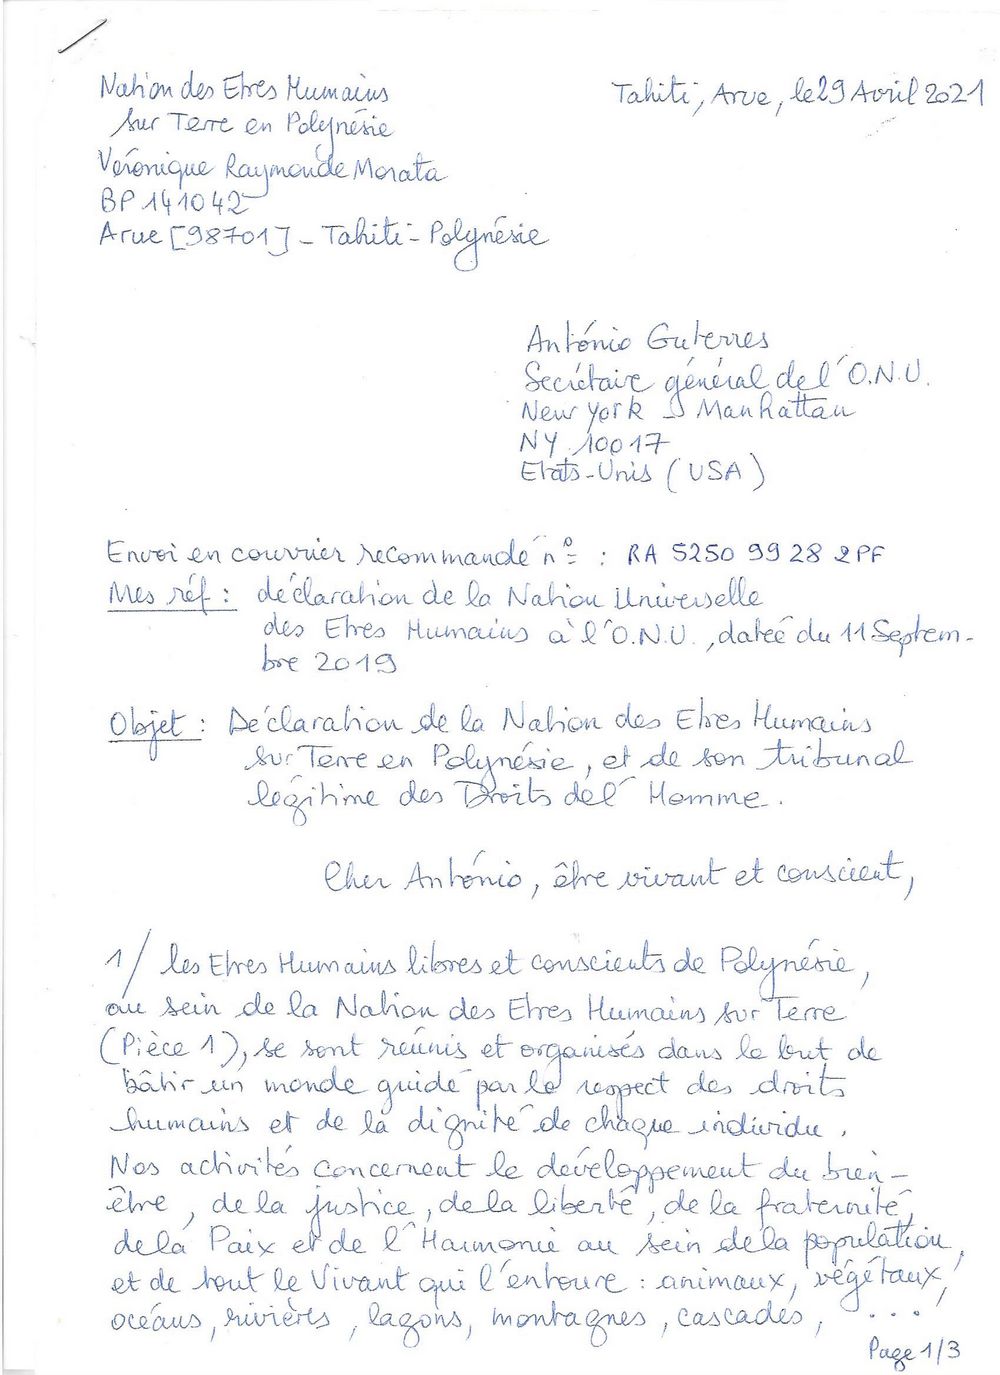 Nation des Etres Humains
sur Terre en Polynésie
Véronique Raymonde Morata
BP 141042
Arue [98701] - Tahiti - Polynésie
Tahiti, Arue, le 29 Avril 2021
António Guterres
Secrétaire général de l'O.N.U.
New York Manhattan
NY 10017
Etats-Unis (USA)
Envoi en courrier recommandé n° : RA 5250 99 28 2PF
Mes réf : déclaration de la Nation Universelle
des Etres Humains à l'O.N.U., datée du 11 Septem-
bre 2019
Objet : Déclaration de la Nation des Etres Humains
sur Terre en Polynésie, et de son tribunal
légitime des Droits de l'Homme.
Cher António, être vivant et conscient,
1/ les Etres Humains libres et conscients de Polynésie,
au sein de la Nation des Etres Humains sur Terre
(Pièce 1), se sont réunis et organisés dans le but de
bâtir un monde guidé par le respect des droits
humains et de la dignité de chaque individu.
Nos activités concernent le développement du bien-
être, de la justice, de la liberté, de la fraternité,
de la Paix et de l'Harmonie au sein de la population,
et de tout le Vivant qui l'entoure : animaux, végétaux,
océans, rivières, lagons, montagnes, cascades, ...
Page 1/3